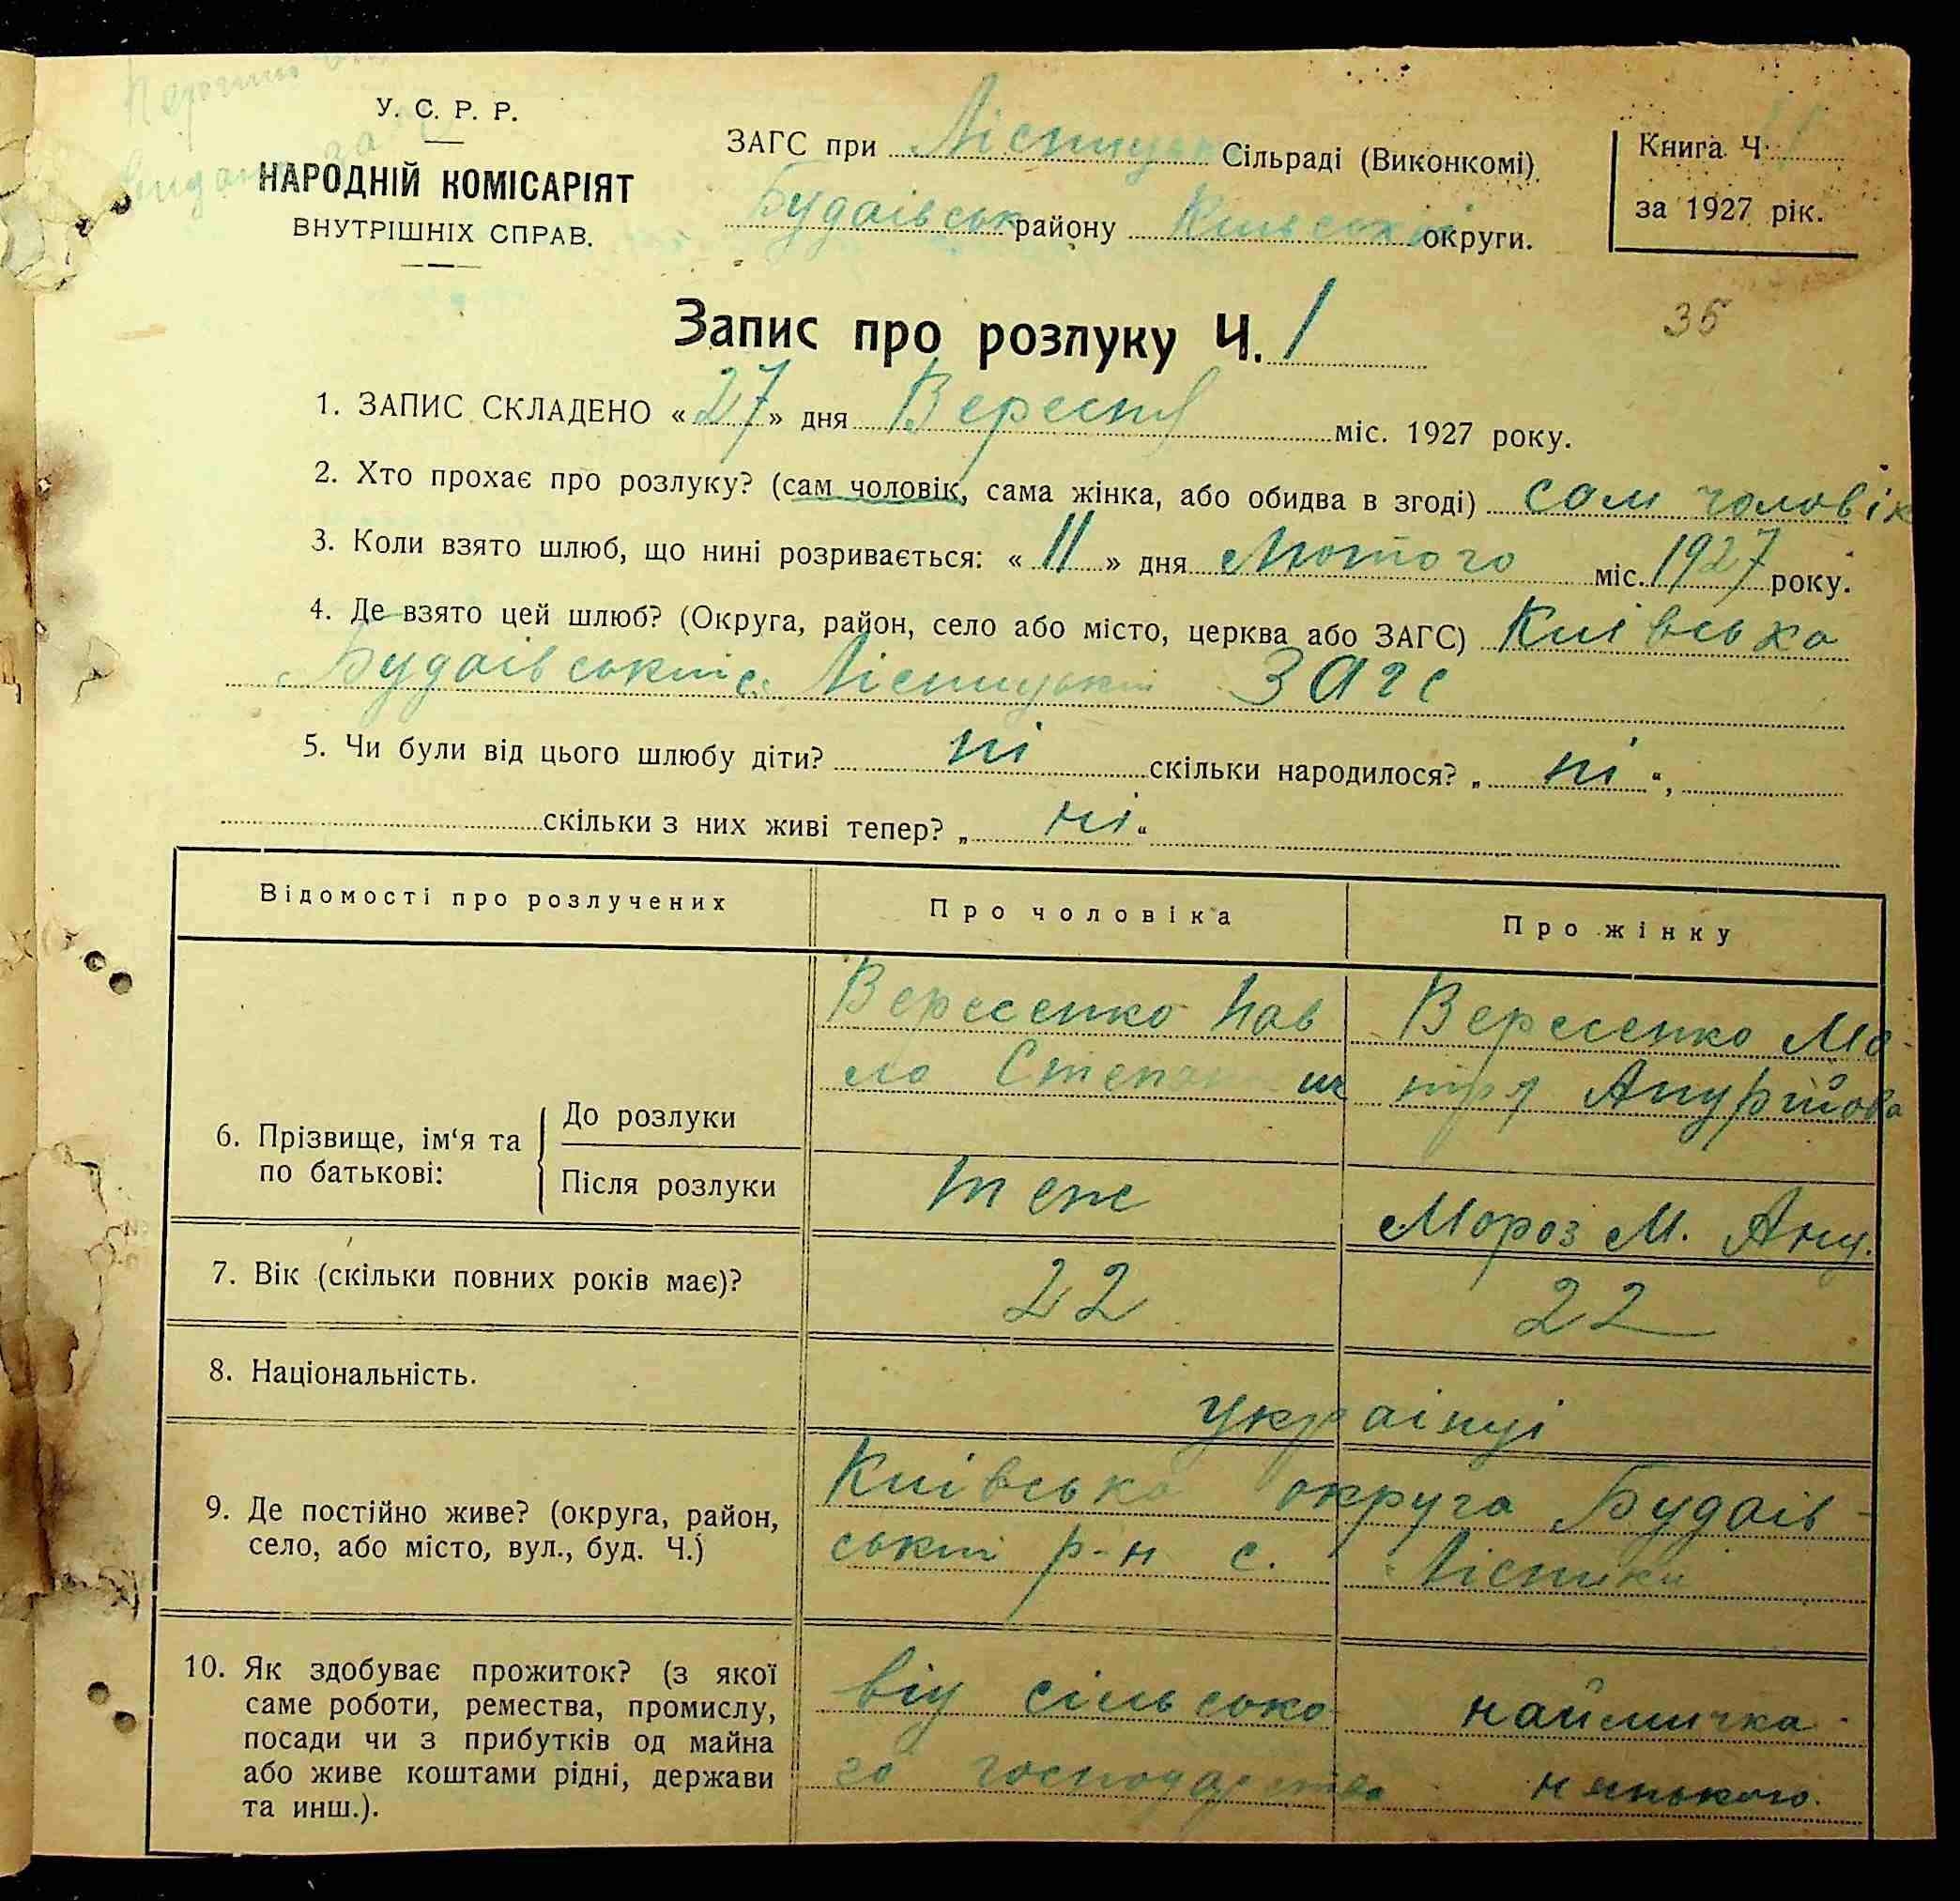 У. С. Р. Р.
НАРОДНІЙ КОМІСАРІЯТ
ВНУТРІШНІХ СПРАВ.
ЗАГС при Лісницьк Сільраді (Виконкомі)
Будаівськ району Київської округи.
Книга Ч.
за 1927 рік.
35
Запис про розлуку Ч. 1
1. ЗАПИС СКЛАДЕНО «27» дня Вересня міс. 1927 року.
2. Хто прохає про розлуку? (сам чоловік, сама жінка, або обидва в згоді) сам чоловік
3. Коли взято шлюб, що нині розривається: «11» дня Лютого міс. 1927 року.
4. Де взято цей шлюб? (Округа, район, село або місто, церква або ЗАГС) Київська
Будаівський с. Лісницький ЗАГС
5. Чи були від цього шлюбу діти? ні скільки народилося? „ ні “,
скільки з них живі тепер? „ ні “
Відомості про розлучених
Про чоловіка
Про жінку
6. Прізвище, ім‘я та
по батькові:
До розлуки
Вересенко Пав
ло Степанович
Вересенко Мо-
тря Андрійова
Після розлуки
теж
Мороз М. Анд.
7. Вік (скільки повних років має)?
22
22
8. Національність.
українці
9. Де постійно живе? (округа, район,
село, або місто, вул., буд. Ч.)
Київська округа Будаів-
ський р-н с. Лісники
10. Як здобуває прожиток? (з якої
саме роботи, ремества, промислу,
посади чи з прибутків од майна
або живе коштами рідні, держави
та инш.).
від сільсько-
го господарства
наймичка